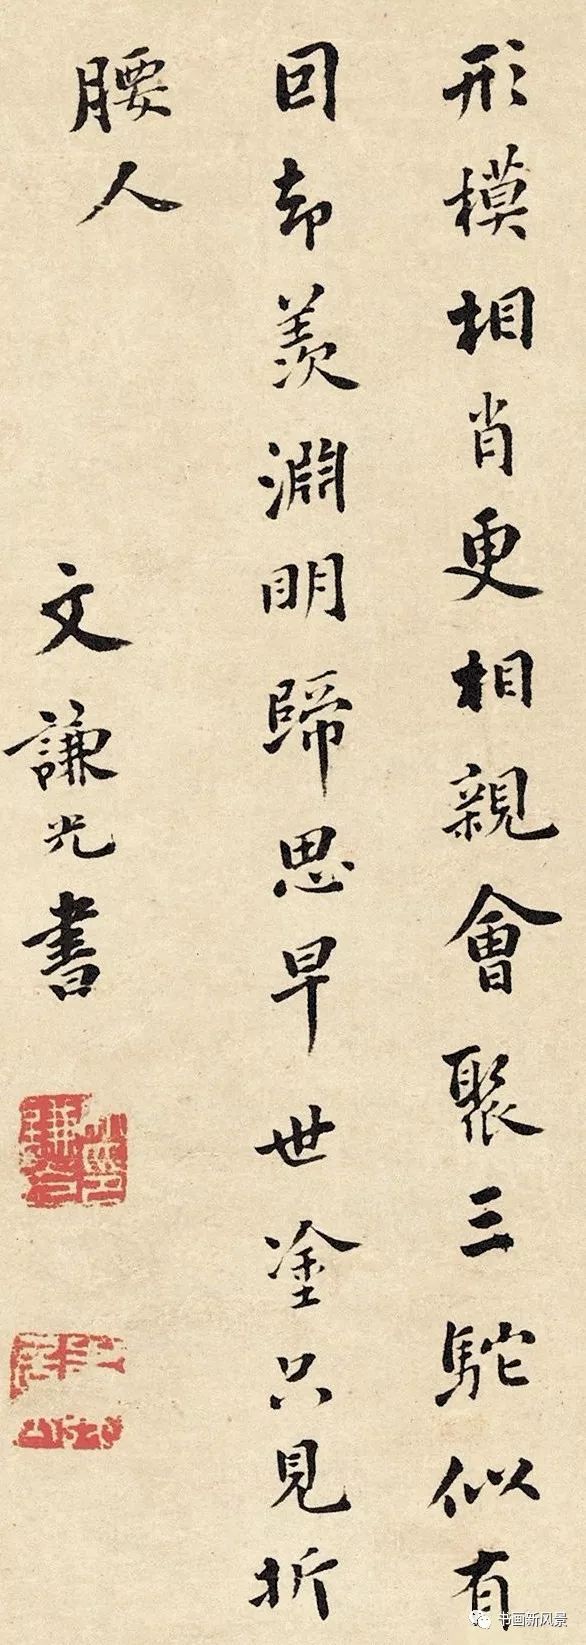 形模相肖更相親會聚三駝似有
回却羨淵明歸思早世塗只見折
腰人
文謙光書
书画新风景